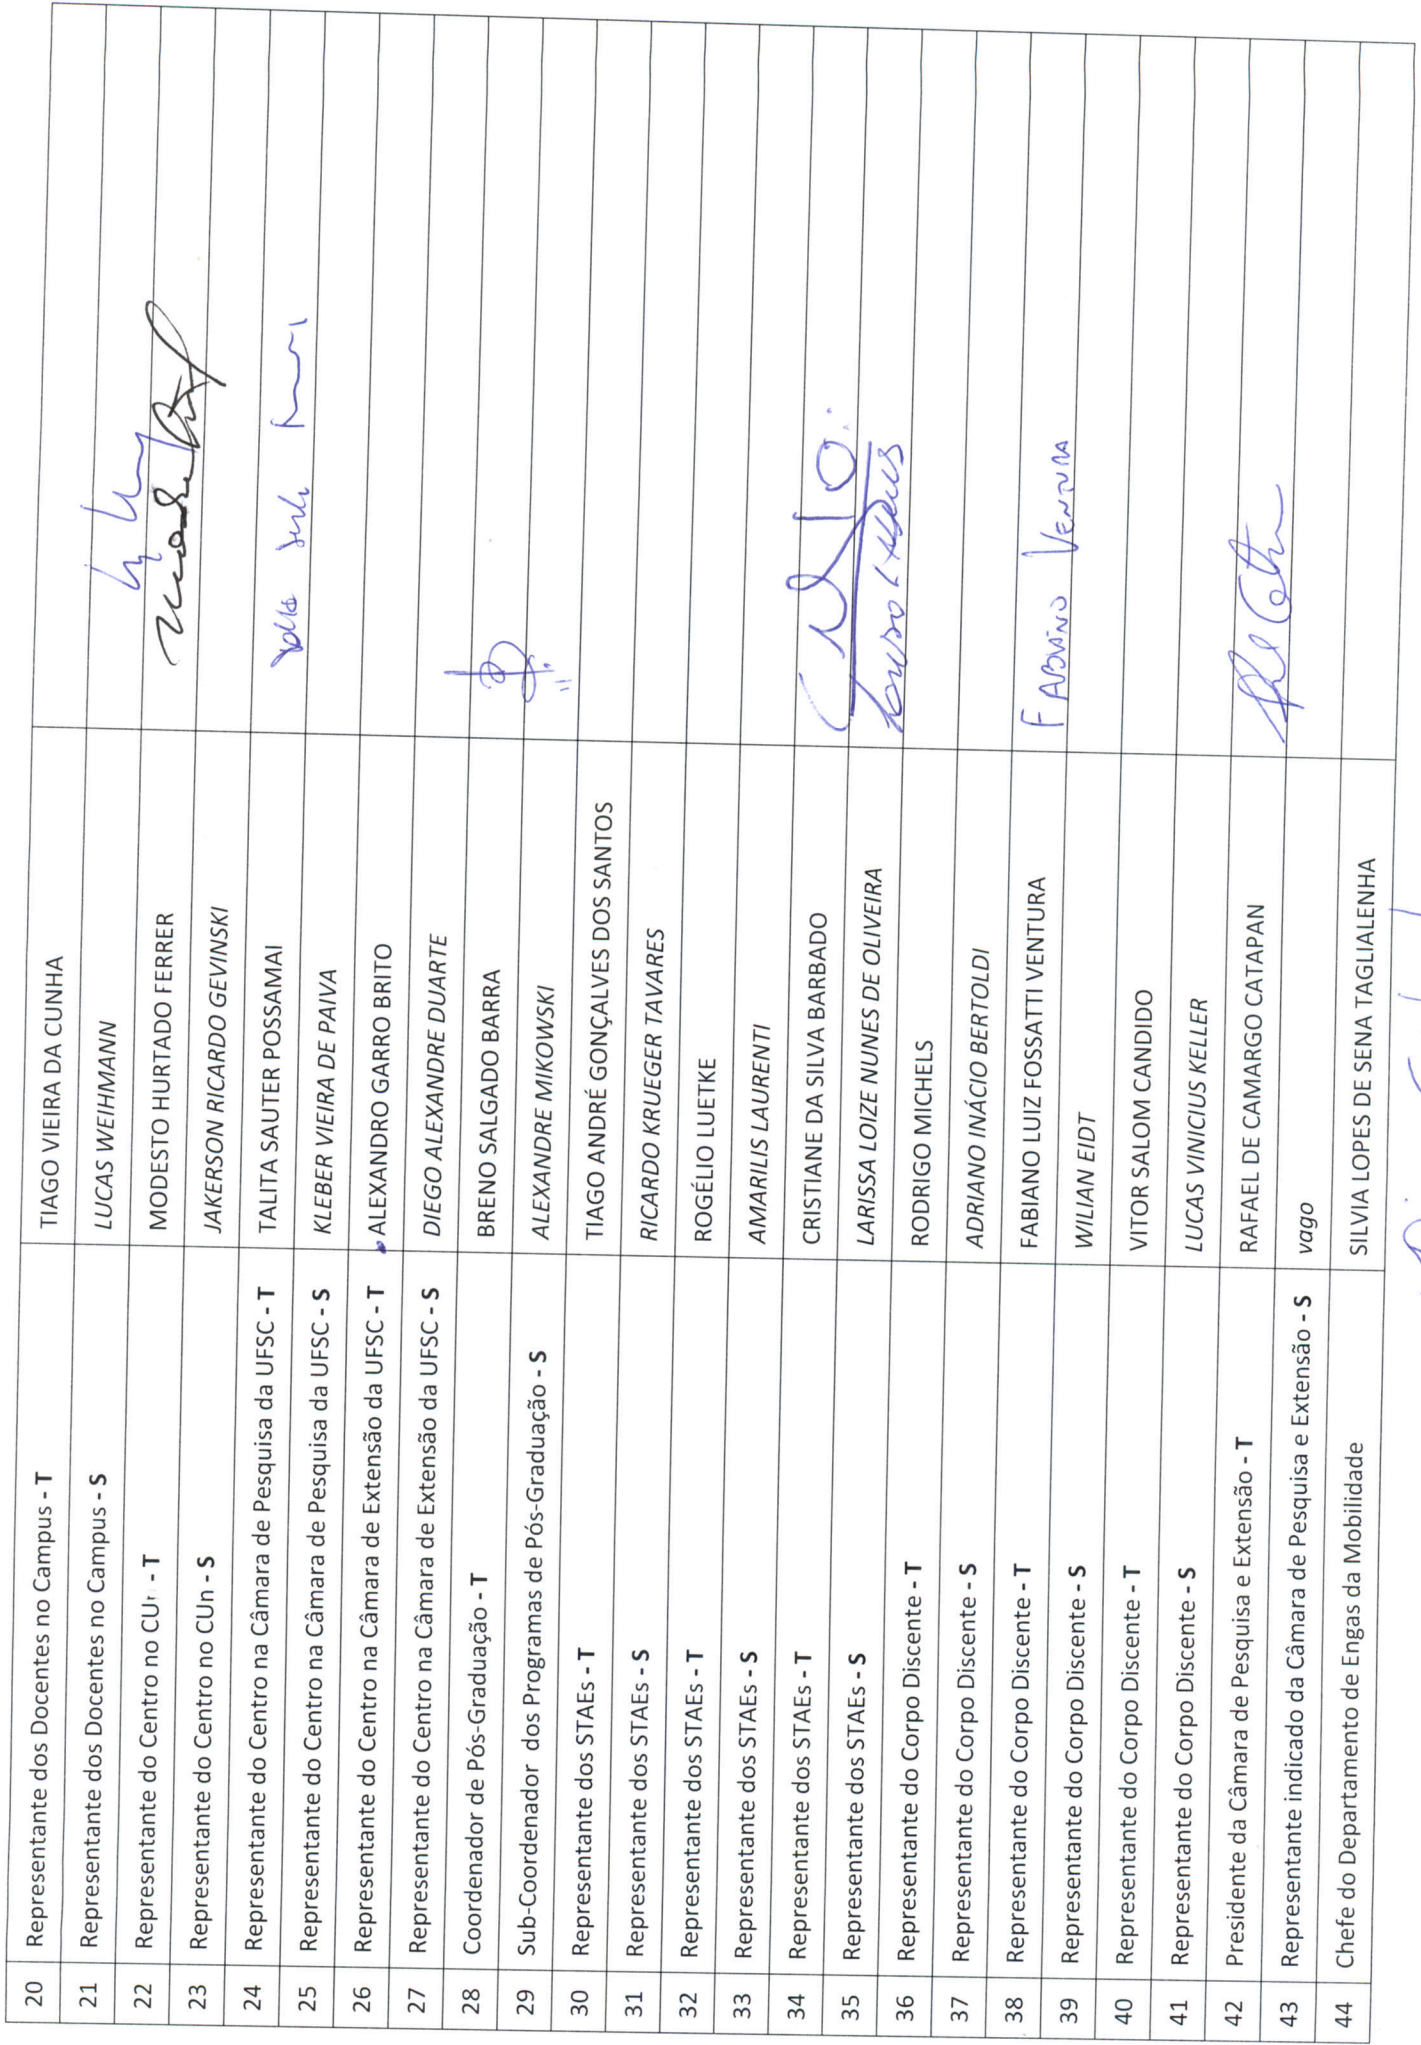 20 Representante dos Docentes no Campus - T TIAGO VIEIRA DA CUNHA
21 Represente dos Docentes no Campus - S LUCAS WEIHMANN
22 Representante do Centro no CUn - T MODESTO HURTADO FERRER
23 Representante do Centro no CUn - S JAKERSON RICARDO GEVINSKI
24 Representante do Centro na Câmara de Pesquisa da UFSC - T TALITA SAUTER POSSAMAI
25 Representante do Centro na Câmara de Pesquisa da UFSC - S KLEBER VIEIRA DE PAIVA
26 Representante do Centro na Câmara de Extensão da UFSC - T ALEXANDRO GARRO BRITO
27 Representante do Centro na Câmara de Extensão da UFSC - S DIEGO ALEXANDRE DUARTE
28 Coordenador de Pós-Graduação - T BRENO SALGADO BARRA
29 Sub-Coordenador dos Programas de Pós-Graduação - S ALEXANDRE MIKOWSKI
30 Representante dos STAEs - T TIAGO ANDRÉ GONÇALVES DOS SANTOS
31 Representante dos STAEs - S RICARDO KRUEGER TAVARES
32 Representante dos STAEs - T ROGÉLIO LUETKE
33 Representante dos STAEs - S AMARILIS LAURENTI
34 Representante dos STAEs - T CRISTIANE DA SILVA BARBADO
35 Representante dos STAEs - S LARISSA LOIZE NUNES DE OLIVEIRA
36 Representante do Corpo Discente - T RODRIGO MICHELS
37 Representante do Corpo Discente - S ADRIANO INÁCIO BERTOLDI
38 Representante do Corpo Discente - T FABIANO LUIZ FOSSATTI VENTURA FABIANO VENTURA
39 Representante do Corpo Discente - S WILIAN EIDT
40 Representante do Corpo Discente - T VITOR SALOM CANDIDO
41 Representante do Corpo Discente - S LUCAS VINICIUS KELLER
42 Presidente da Câmara de Pesquisa e Extensão - T RAFAEL DE CAMARGO CATAPAN
43 Representante indicado da Câmara de Pesquisa e Extensão - S vago
44 Chefe do Departamento de Engas da Mobilidade SILVIA LOPES DE SENA TAGLIALENHA